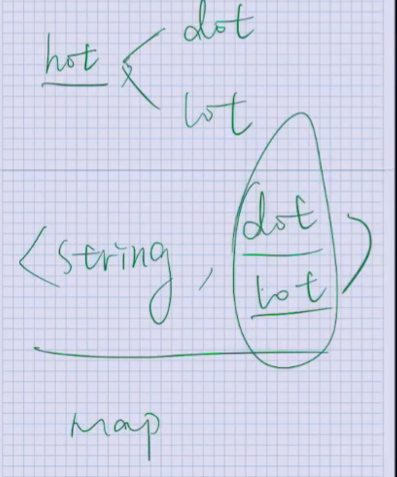 dot
hot <
lot
<string, dot
lot >
map